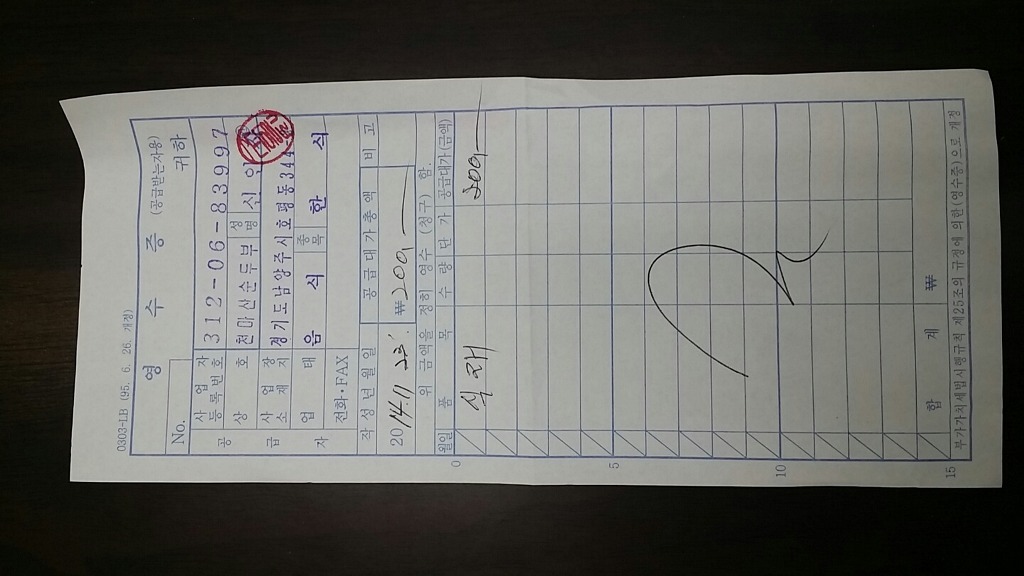 0303-LB (95. 6. 26. 개정)
영 수 증 (공급받는자용)
No. 귀하
공 급 자
사업자등록번호 312-06-83997
상 호 천마산순두부 성명 신
사업장소재지 경기도남양주시호평동344
업 태 음 식 종목 한 식
전화·FAX
작성년월일 공급대가총액 비 고
2014.11.23. ₩200,—
위 금액을 정히 영수 (청구) 함.
월일 품 목 수 량 단 가 공급대가(금액)
0
식대 200,—
5
10
합 계 ₩
15
부가가치세법시행규칙 제25조의 규정에 의한 (영수증)으로 개정